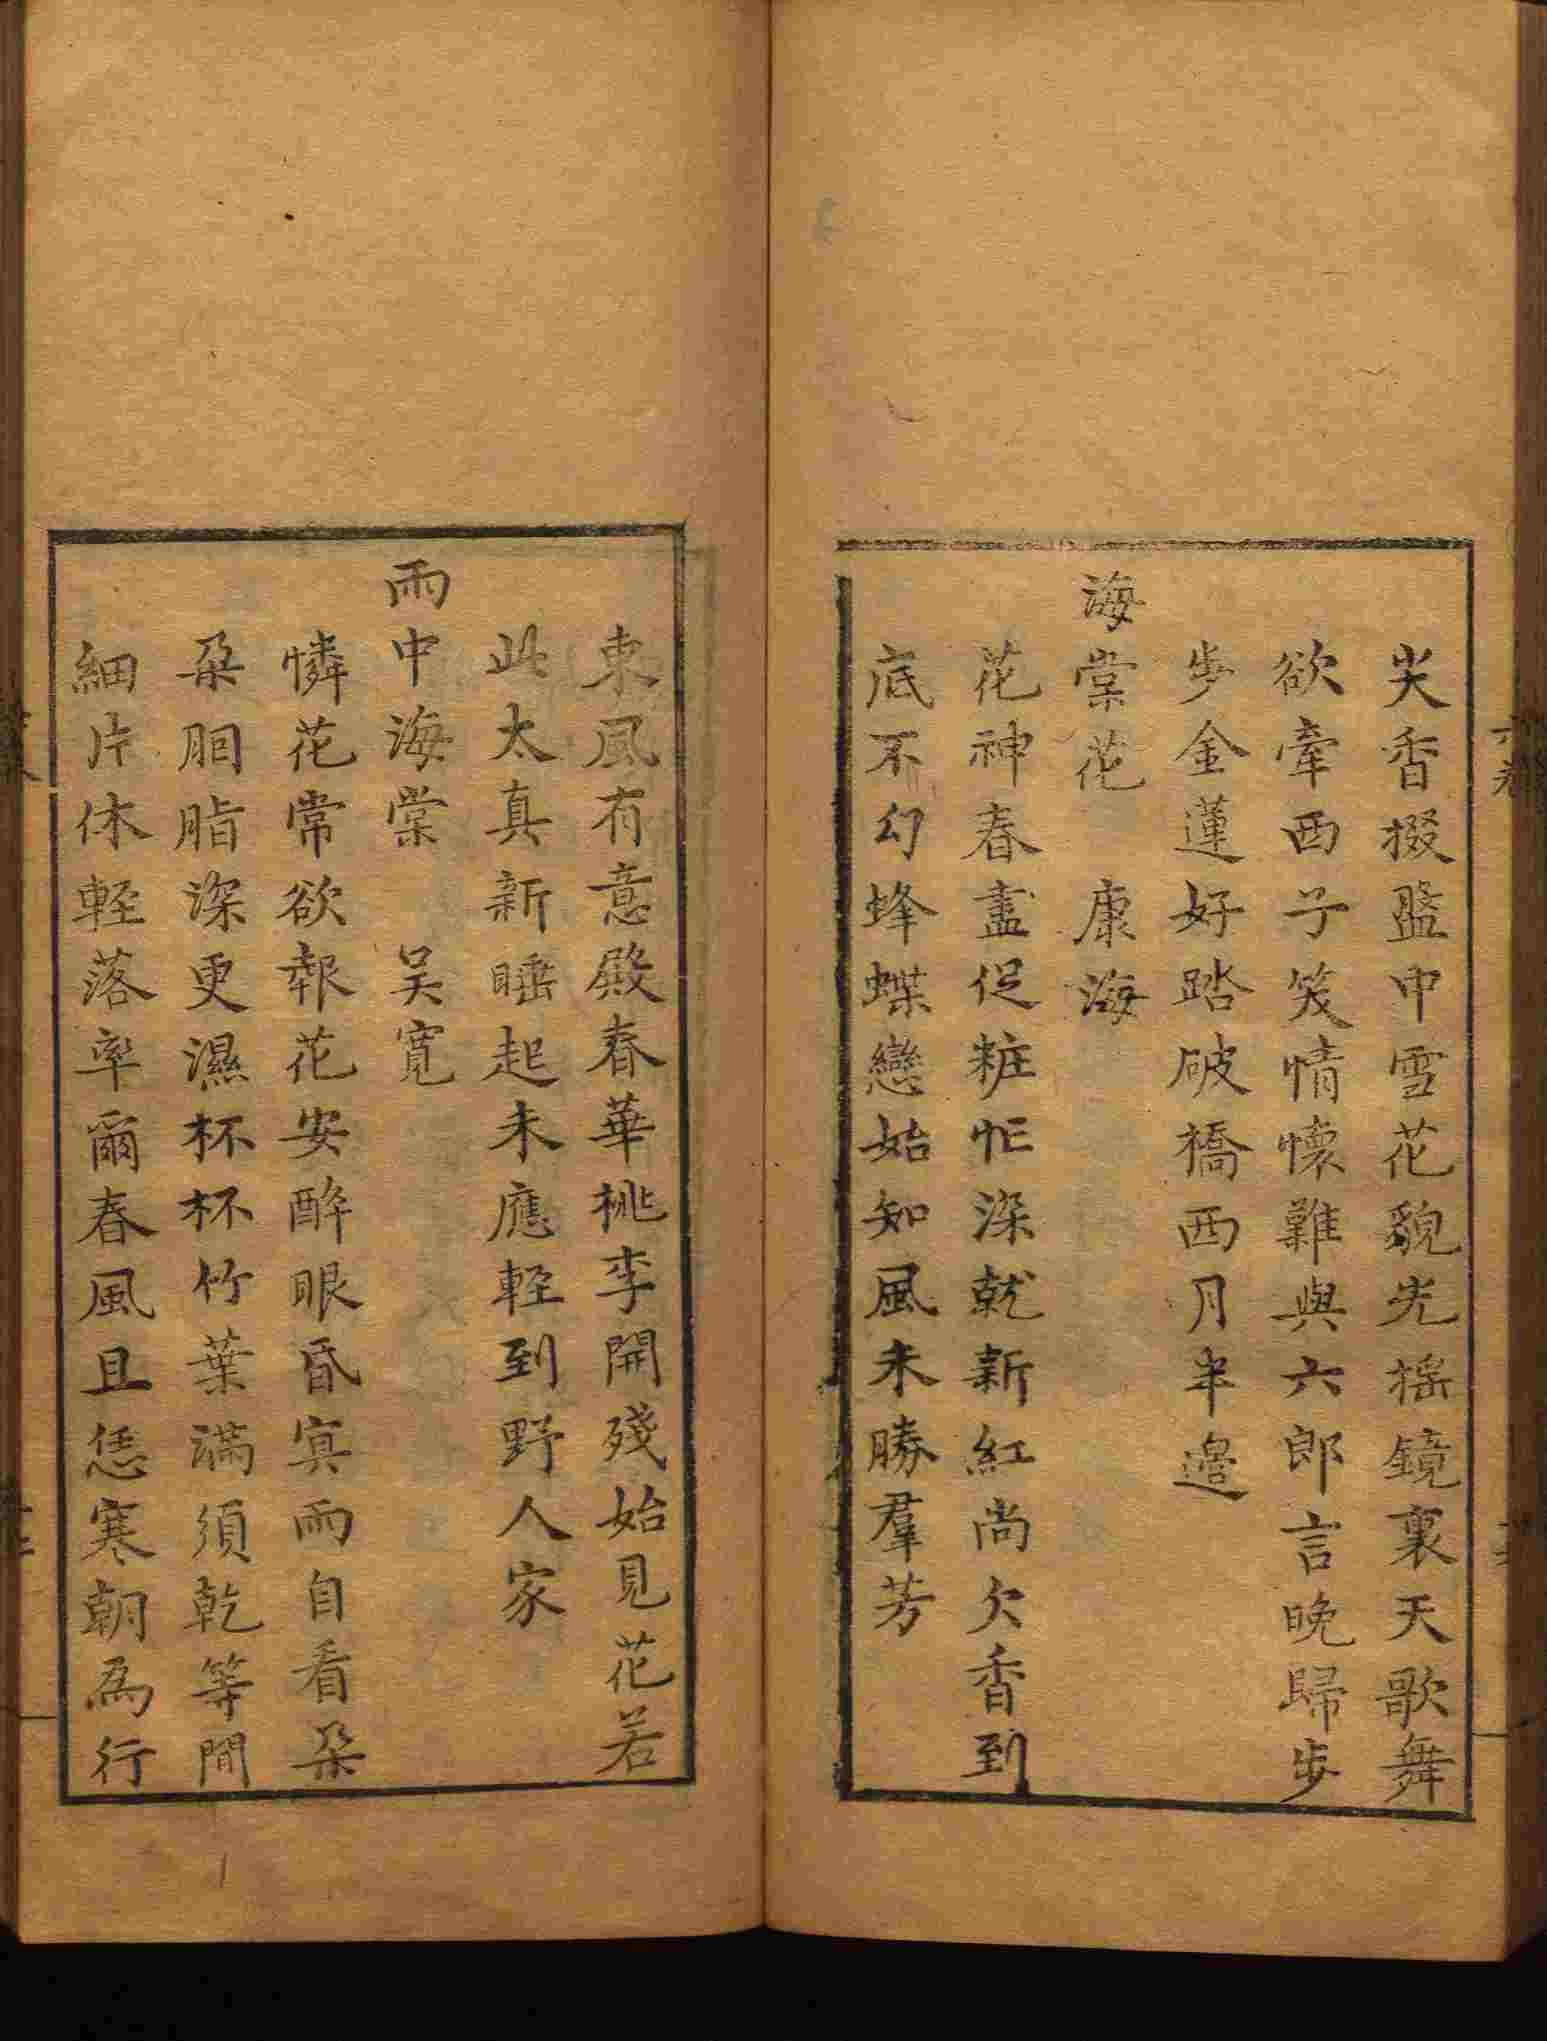 尖香掇盤中雪花貌先摇鏡裏天歌舞
欲牽西子笑情懷難與六郎言晚歸步
步金蓮好踏破橋西月半邊
海棠花　康海
花神春盡促粧忙深就新紅尚欠香到
底不幻蜂蝶戀始知風未勝羣芳
東風有意殿春華桃李開殘始見花若
此太真新睡起未應輕到野人家
雨中海棠　吴寛
憐花常欲報花安醉眼昏寅雨自看朵
朶胭脂深更濕杯杯竹葉滿須乾等閒
細片休輕落率爾春風且恁寒朝為行